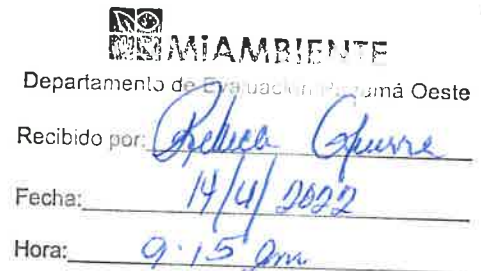 MIAMBIENTE
Departamento de Evaluación Panamá Oeste
Recibido por: Rebeca
Fecha: 14/4/2022
Hora: 9:15 am